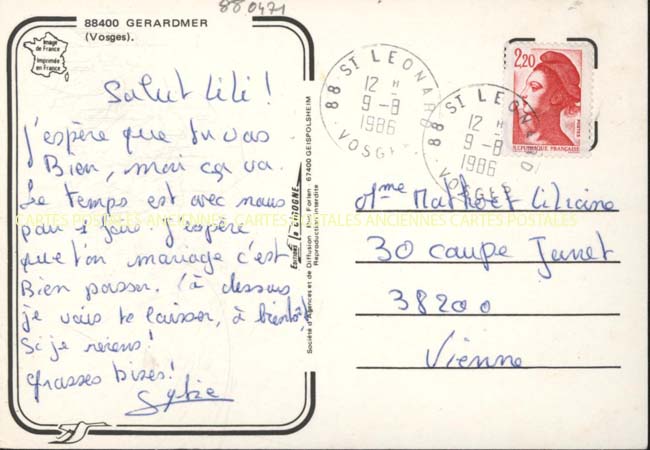 88 0471
88400 GERARDMER
(Vosges).
Image
de France
Imprimée
en France
Salut Lili !
J'espère que tu vas
Bien, moi ça va.
Le temps est avec nous
pour 1 fois j'espère
que ton mariage c'est
Bien passer. Là dessus
je vais te laisser, à bientôt
Si je reviens !
Grosses bises !
Sylvie
CARTES POSTALES ANCIENNES CARTES POSTALES ANCIENNES CARTES POSTALES
Editions la CIGOGNE
Société d'Agences et de Diffusion 67400 GEISPOLSHEIM
Reproduction interdite
88 ST LEONARD
12 H
9-8
1986
VOSGES
88 ST LEONARD
12 H
9-8
1986
VOSGES
2,20
POSTES
REPUBLIQUE FRANÇAISE
Mme Liliane
30 Jamet
38200
Vienne